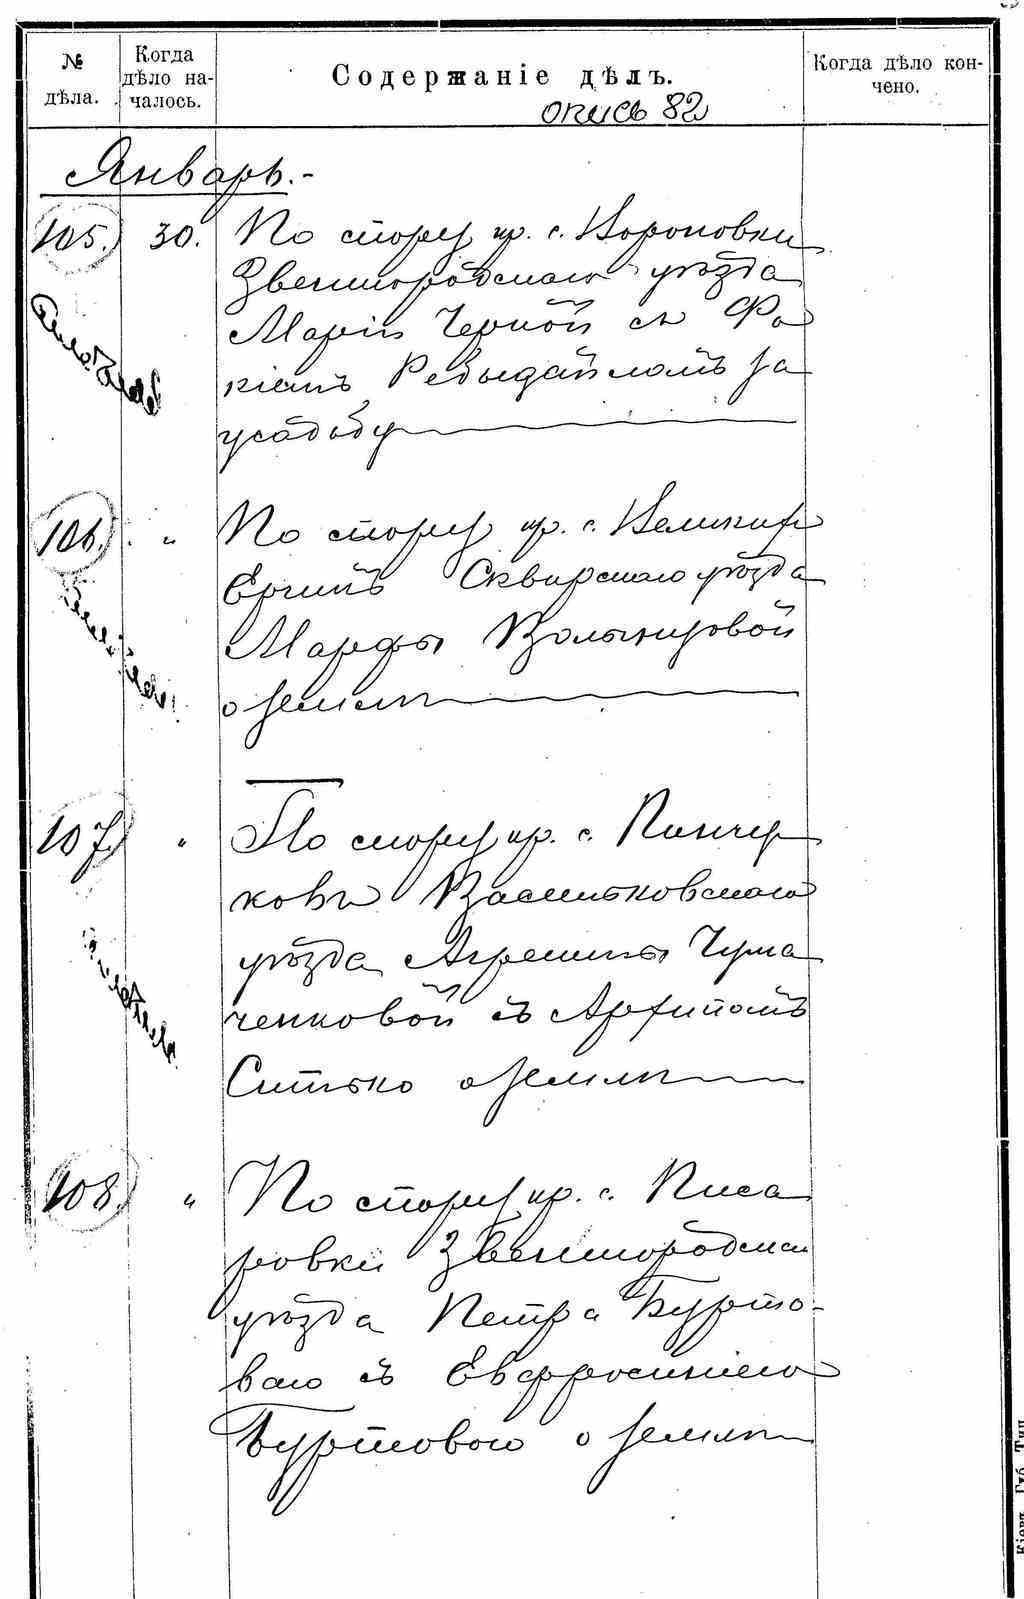 № дѣла.
Когда дѣло началось.
Содержаніе дѣлъ.
Когда дѣло кончено.
опись 82
Январь.-
105. 30. По спору кр. с. Вороновки
Звенигородскаго уѣзда
Маріи Черной съ Фо
кіемъ
за
усадьбу
106. " По спору кр. с. Великихъ
Ерчикъ Сквирскаго уѣзда
Марфы
о землѣ
107. " По спору кр. с. Пинчу
ковъ Васильковскаго
уѣзда Агрепины Чума
ченковой съ Архипомъ
Ситько о землѣ
108. " По спору кр. с. Писа
ровки Звенигородскаго
уѣзда Петра Бурто-
ваго съ Евфросиніею
Буртовою о землѣ
Кіевъ. Губ. Тип.